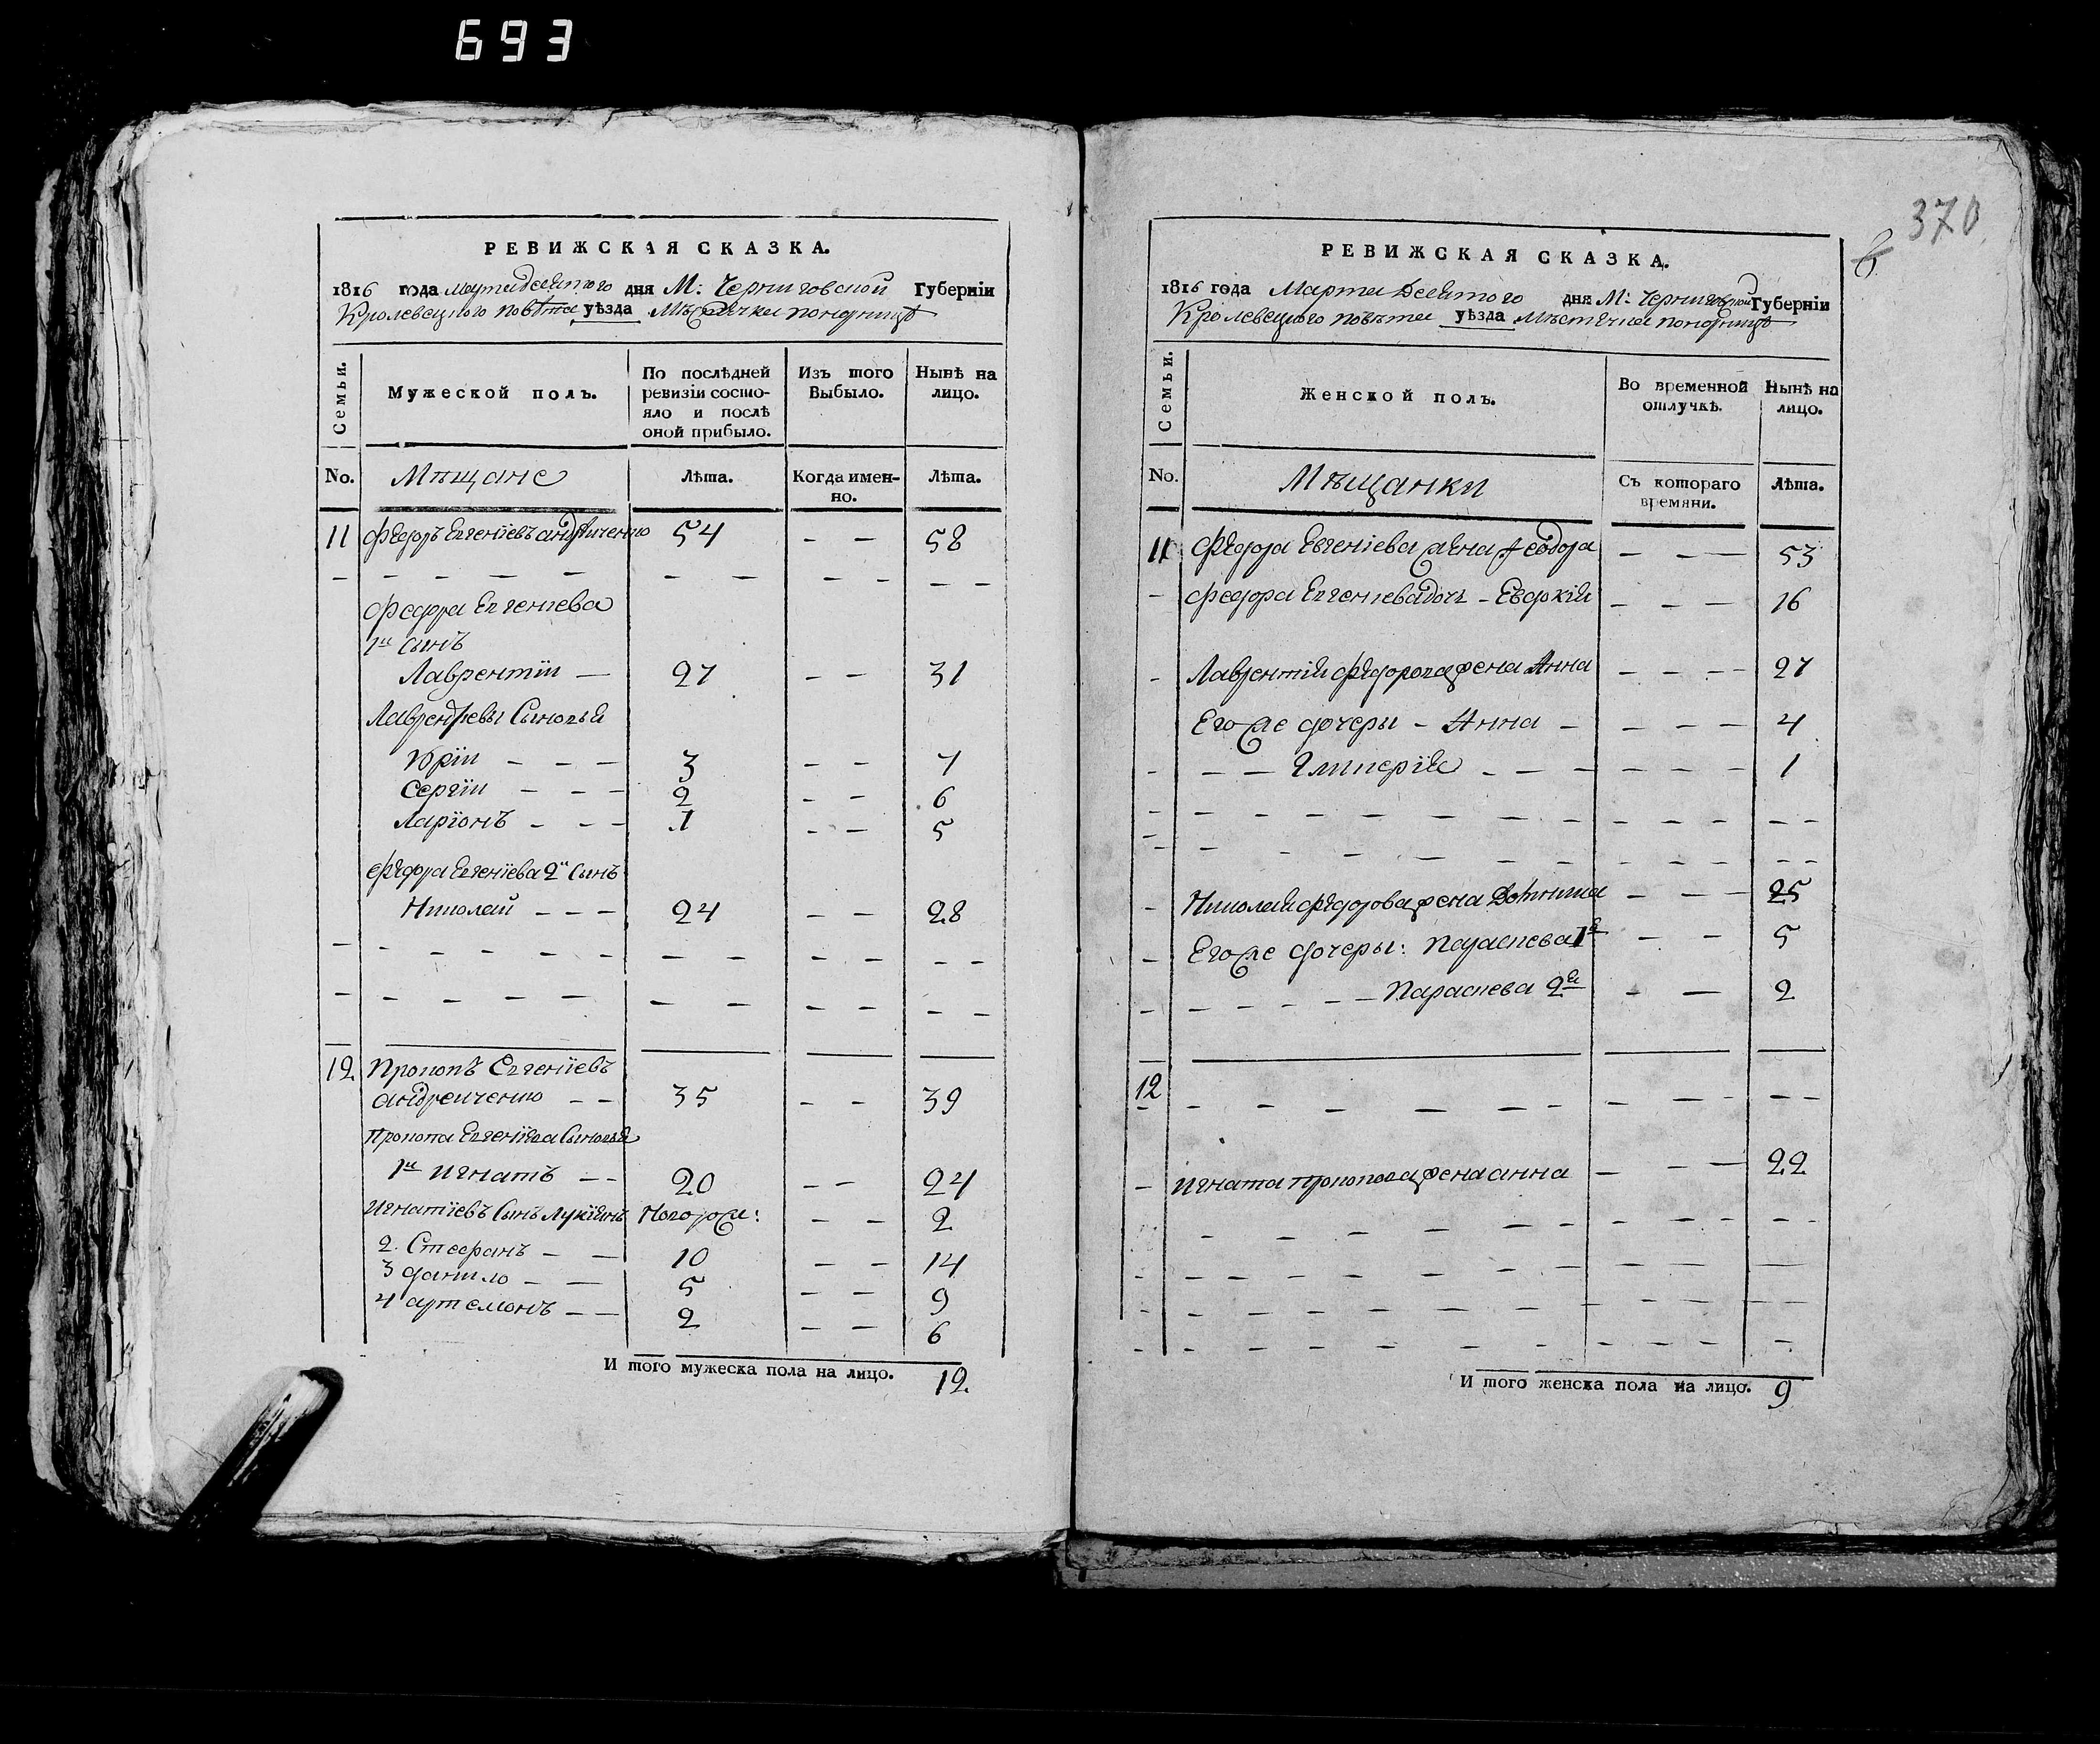 693
РЕВИЖСКАЯ СКАЗКА.
1816 года марта десятого дня М: Черниговской Губерніи
Кролевецкого повѣта уѣзда Мѣстечка понорницѣ
Семьи.
Мужеской полъ.
По послѣдней ревизіи состояло и послѣ оной прибыло.
Изъ того Выбыло.
Нынѣ на лицо.
No.
Мѣщане
Лѣта.
Когда именно.
Лѣта.
11 Федоръ Евгеніевъ андрѣиченко 54 – – 58
Федора Евгеніева
1й сынъ
Лаврентіи – 27 – – 31
Лаврентіевы Сыновья
Юріи – – – 3 – – 7
Сергіи – – – 2 – – 6
Ларіонъ – – – 1 – – 5
Федора Евгеніева 2й Сынъ
Николай – – – 24 – – 28
12 Прокопъ Евгеніевъ
андреиченко – – 35 – – 39
Прокопа Евгеніева Сыновья
1й Игнатъ – – 20 – – 24
Игнатіевъ Сынъ Лукіянъ Новорож: – – 2
2. Стефанъ – – 10 – – 14
3 данило – – 5 – – 9
4 артемонъ – – 2 – – 6
И того мужеска пола на лицо. 12
370
РЕВИЖСКАЯ СКАЗКА.
1816 года Марта Десятого дня М: Черниговской Губерніи
Кролевецкого повѣта уѣзда Мѣстечка понорницѣ
Семьи.
Женской полъ.
Во временной отлучкѣ.
Нынѣ на лицо.
No.
Мѣщанки
Съ котораго времяни.
Лѣта.
11 Федора Евгеніева жена Феодора – – – 53
Федора Евгеніева дочь – Евдокія – – – 16
Лаврентія Федорова жена Анна – – – – 27
Его же дочеры – Анна – – – – – 4
– – – Гликерія – – – – – – – 1
Николая Федорова жена – – – 25
Его же дочеры: Параскева 1я – – 5
– – – – – Параскева 2я – – 2
12
Игната Прокопова жена анна – – – 22
И того женска пола на лицо. 9